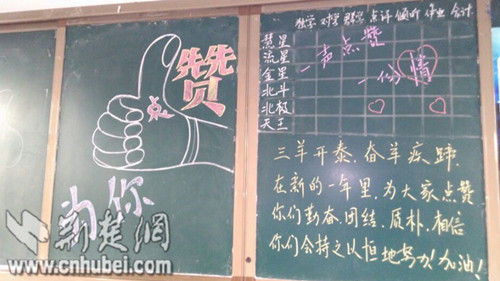 为你
点
赞
独学 对学 群学 点评 倾听 作业 合计
慧星
流星
金星
北斗
北极
天王
一声点赞
一份情
三羊开泰.奋羊疾蹄.
在新的一年里.为大家点赞
你们勤奋.团结.质朴.相信
你们会持之以恒地努力!加油!
荆楚网
www.cnhubei.com